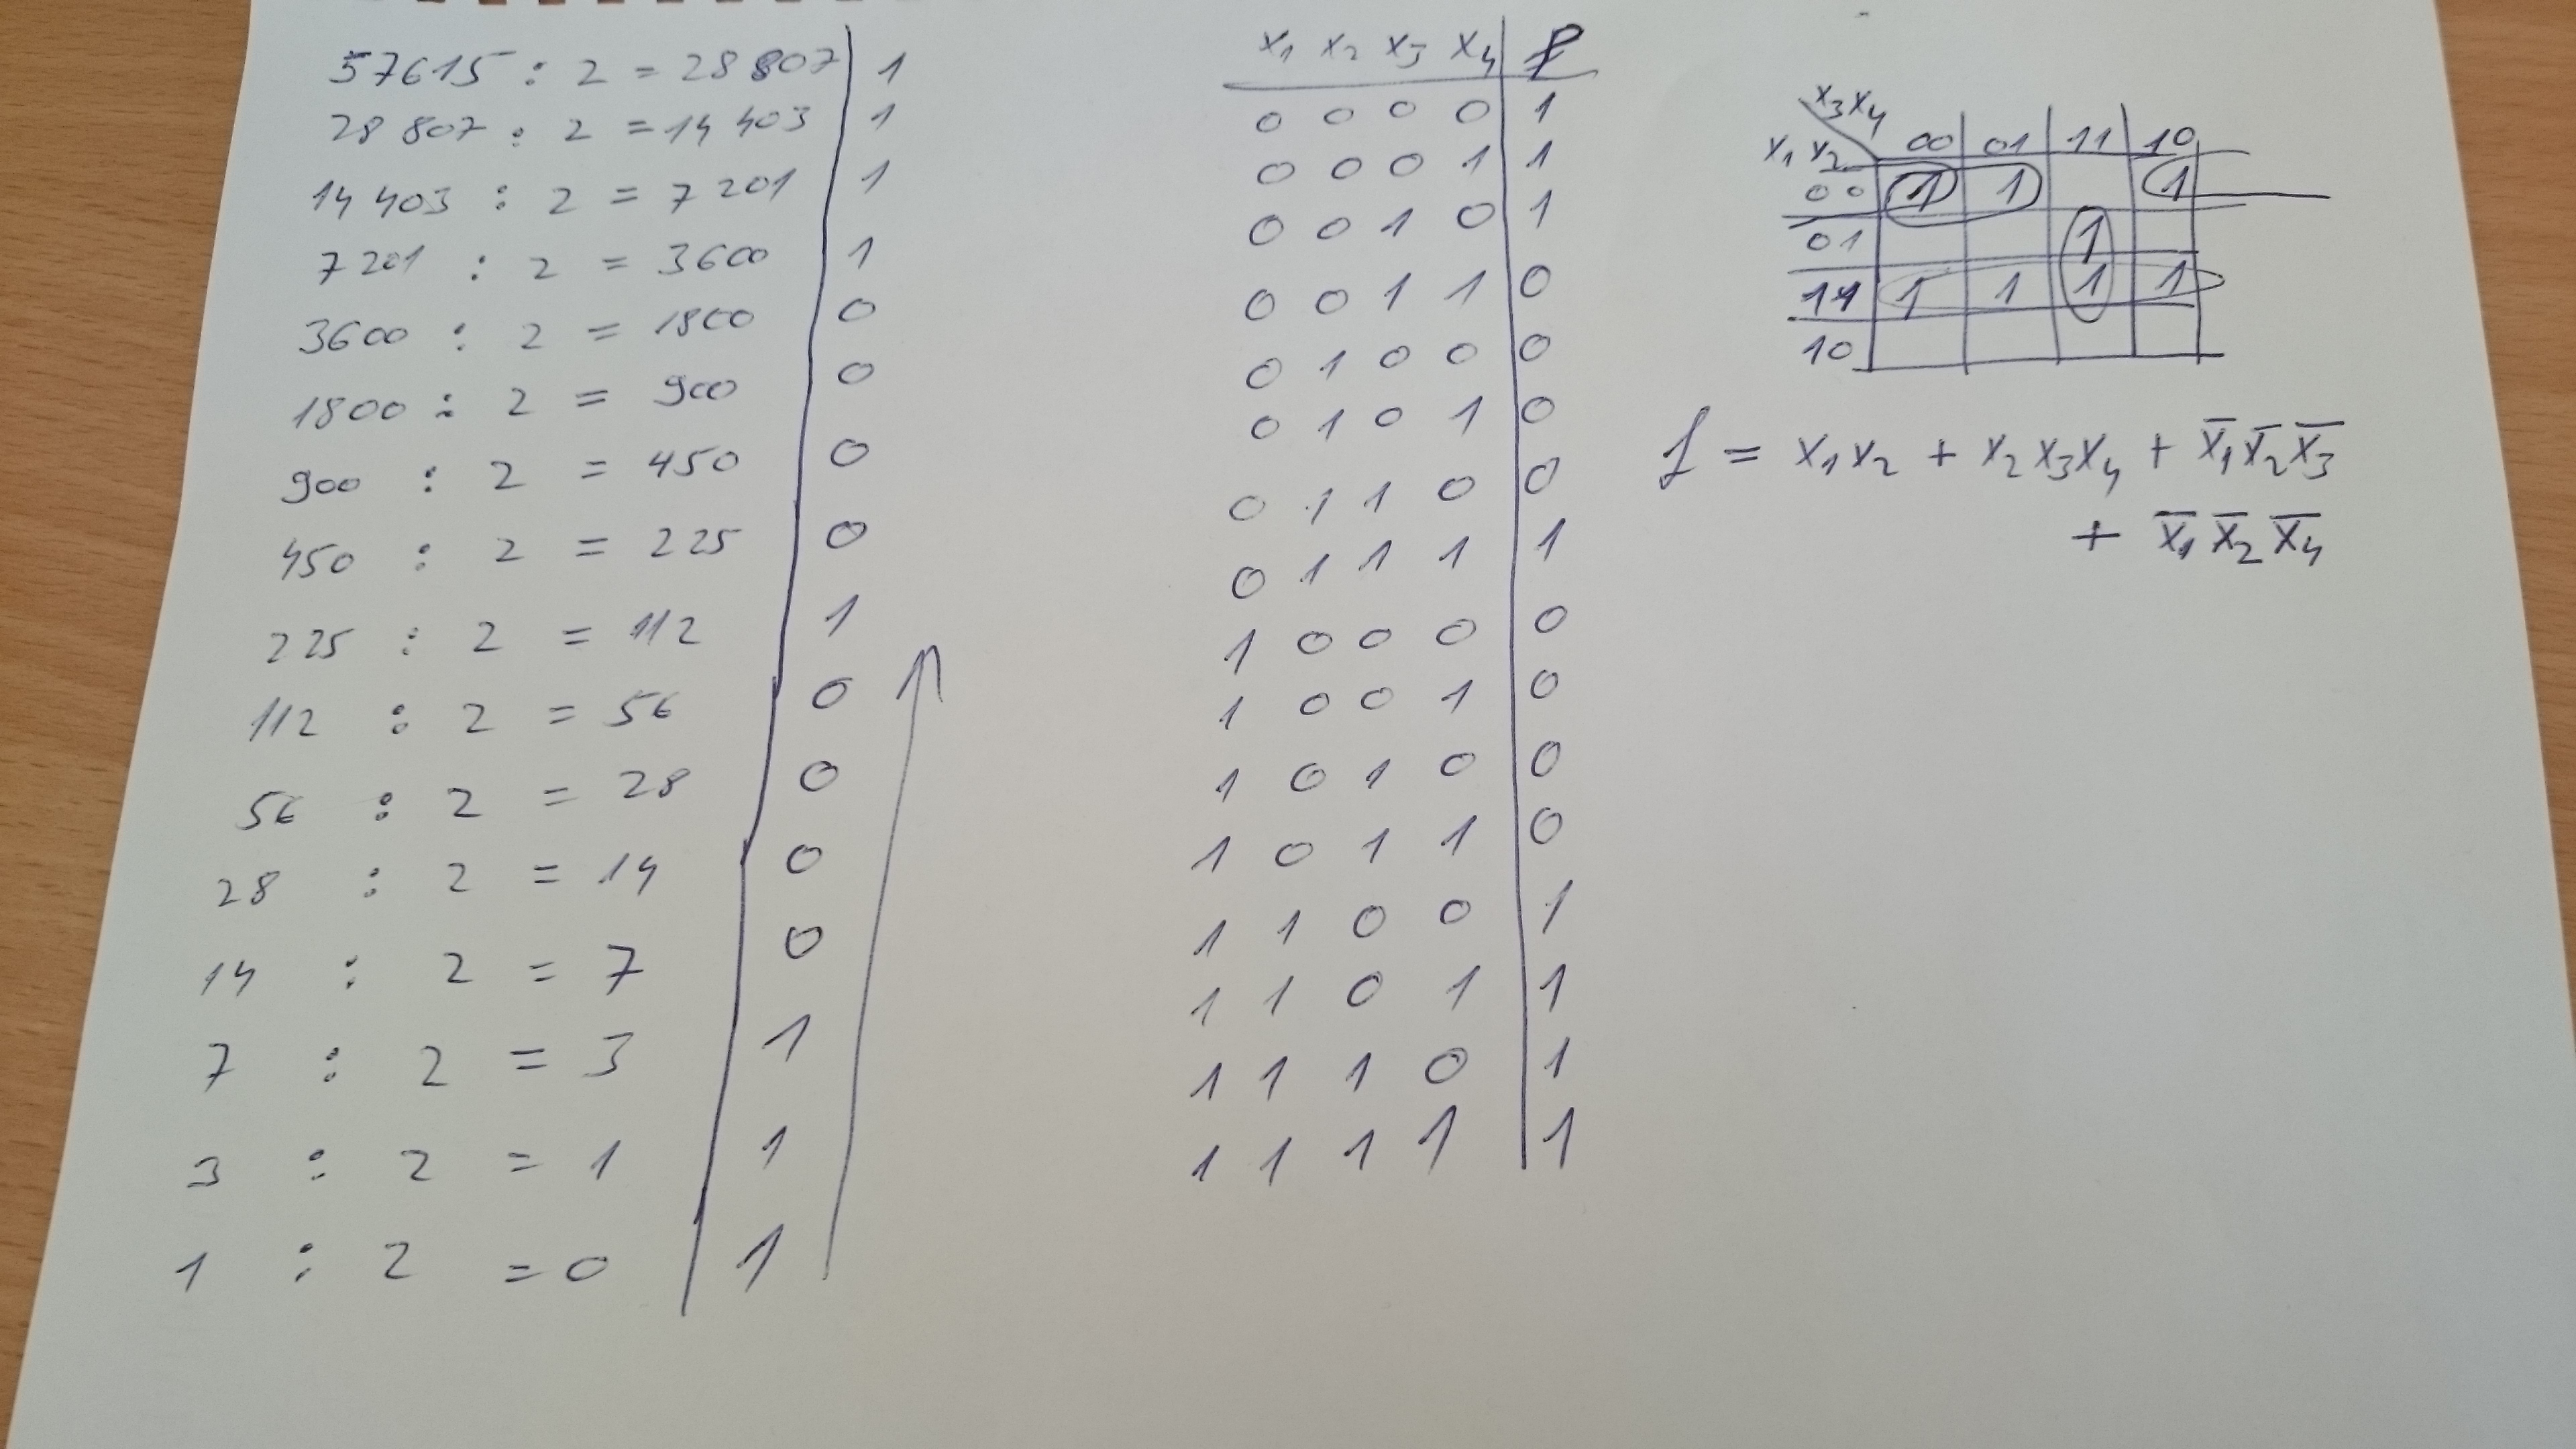 57615 : 2 = 28807 | 1
28 807 : 2 = 14 403 | 1
14 403 : 2 = 7 201 | 1
7 201 : 2 = 3600 | 1
3600 : 2 = 1800 | 0
1800 : 2 = 900 | 0
900 : 2 = 450 | 0
450 : 2 = 225 | 0
225 : 2 = 112 | 1
112 : 2 = 56 | 0
56 : 2 = 28 | 0
28 : 2 = 14 | 0
14 : 2 = 7 | 0
7 : 2 = 3 | 1
3 : 2 = 1 | 1
1 : 2 = 0 | 1
x₁ x₂ x₃ x₄ | f
0 0 0 0 | 1
0 0 0 1 | 1
0 0 1 0 | 1
0 0 1 1 | 0
0 1 0 0 | 0
0 1 0 1 | 0
0 1 1 0 | 0
0 1 1 1 | 1
1 0 0 0 | 0
1 0 0 1 | 0
1 0 1 0 | 0
1 0 1 1 | 0
1 1 0 0 | 1
1 1 0 1 | 1
1 1 1 0 | 1
1 1 1 1 | 1
x₃x₄
x₁ x₂ 00 01 11 10
00 1 1 1
01 1
11 1 1 1 1
10
f = x₁x₂ + x₂x₃x₄ + x̅₁x̅₂x̅₃
+ x̅₁x̅₂x̅₄